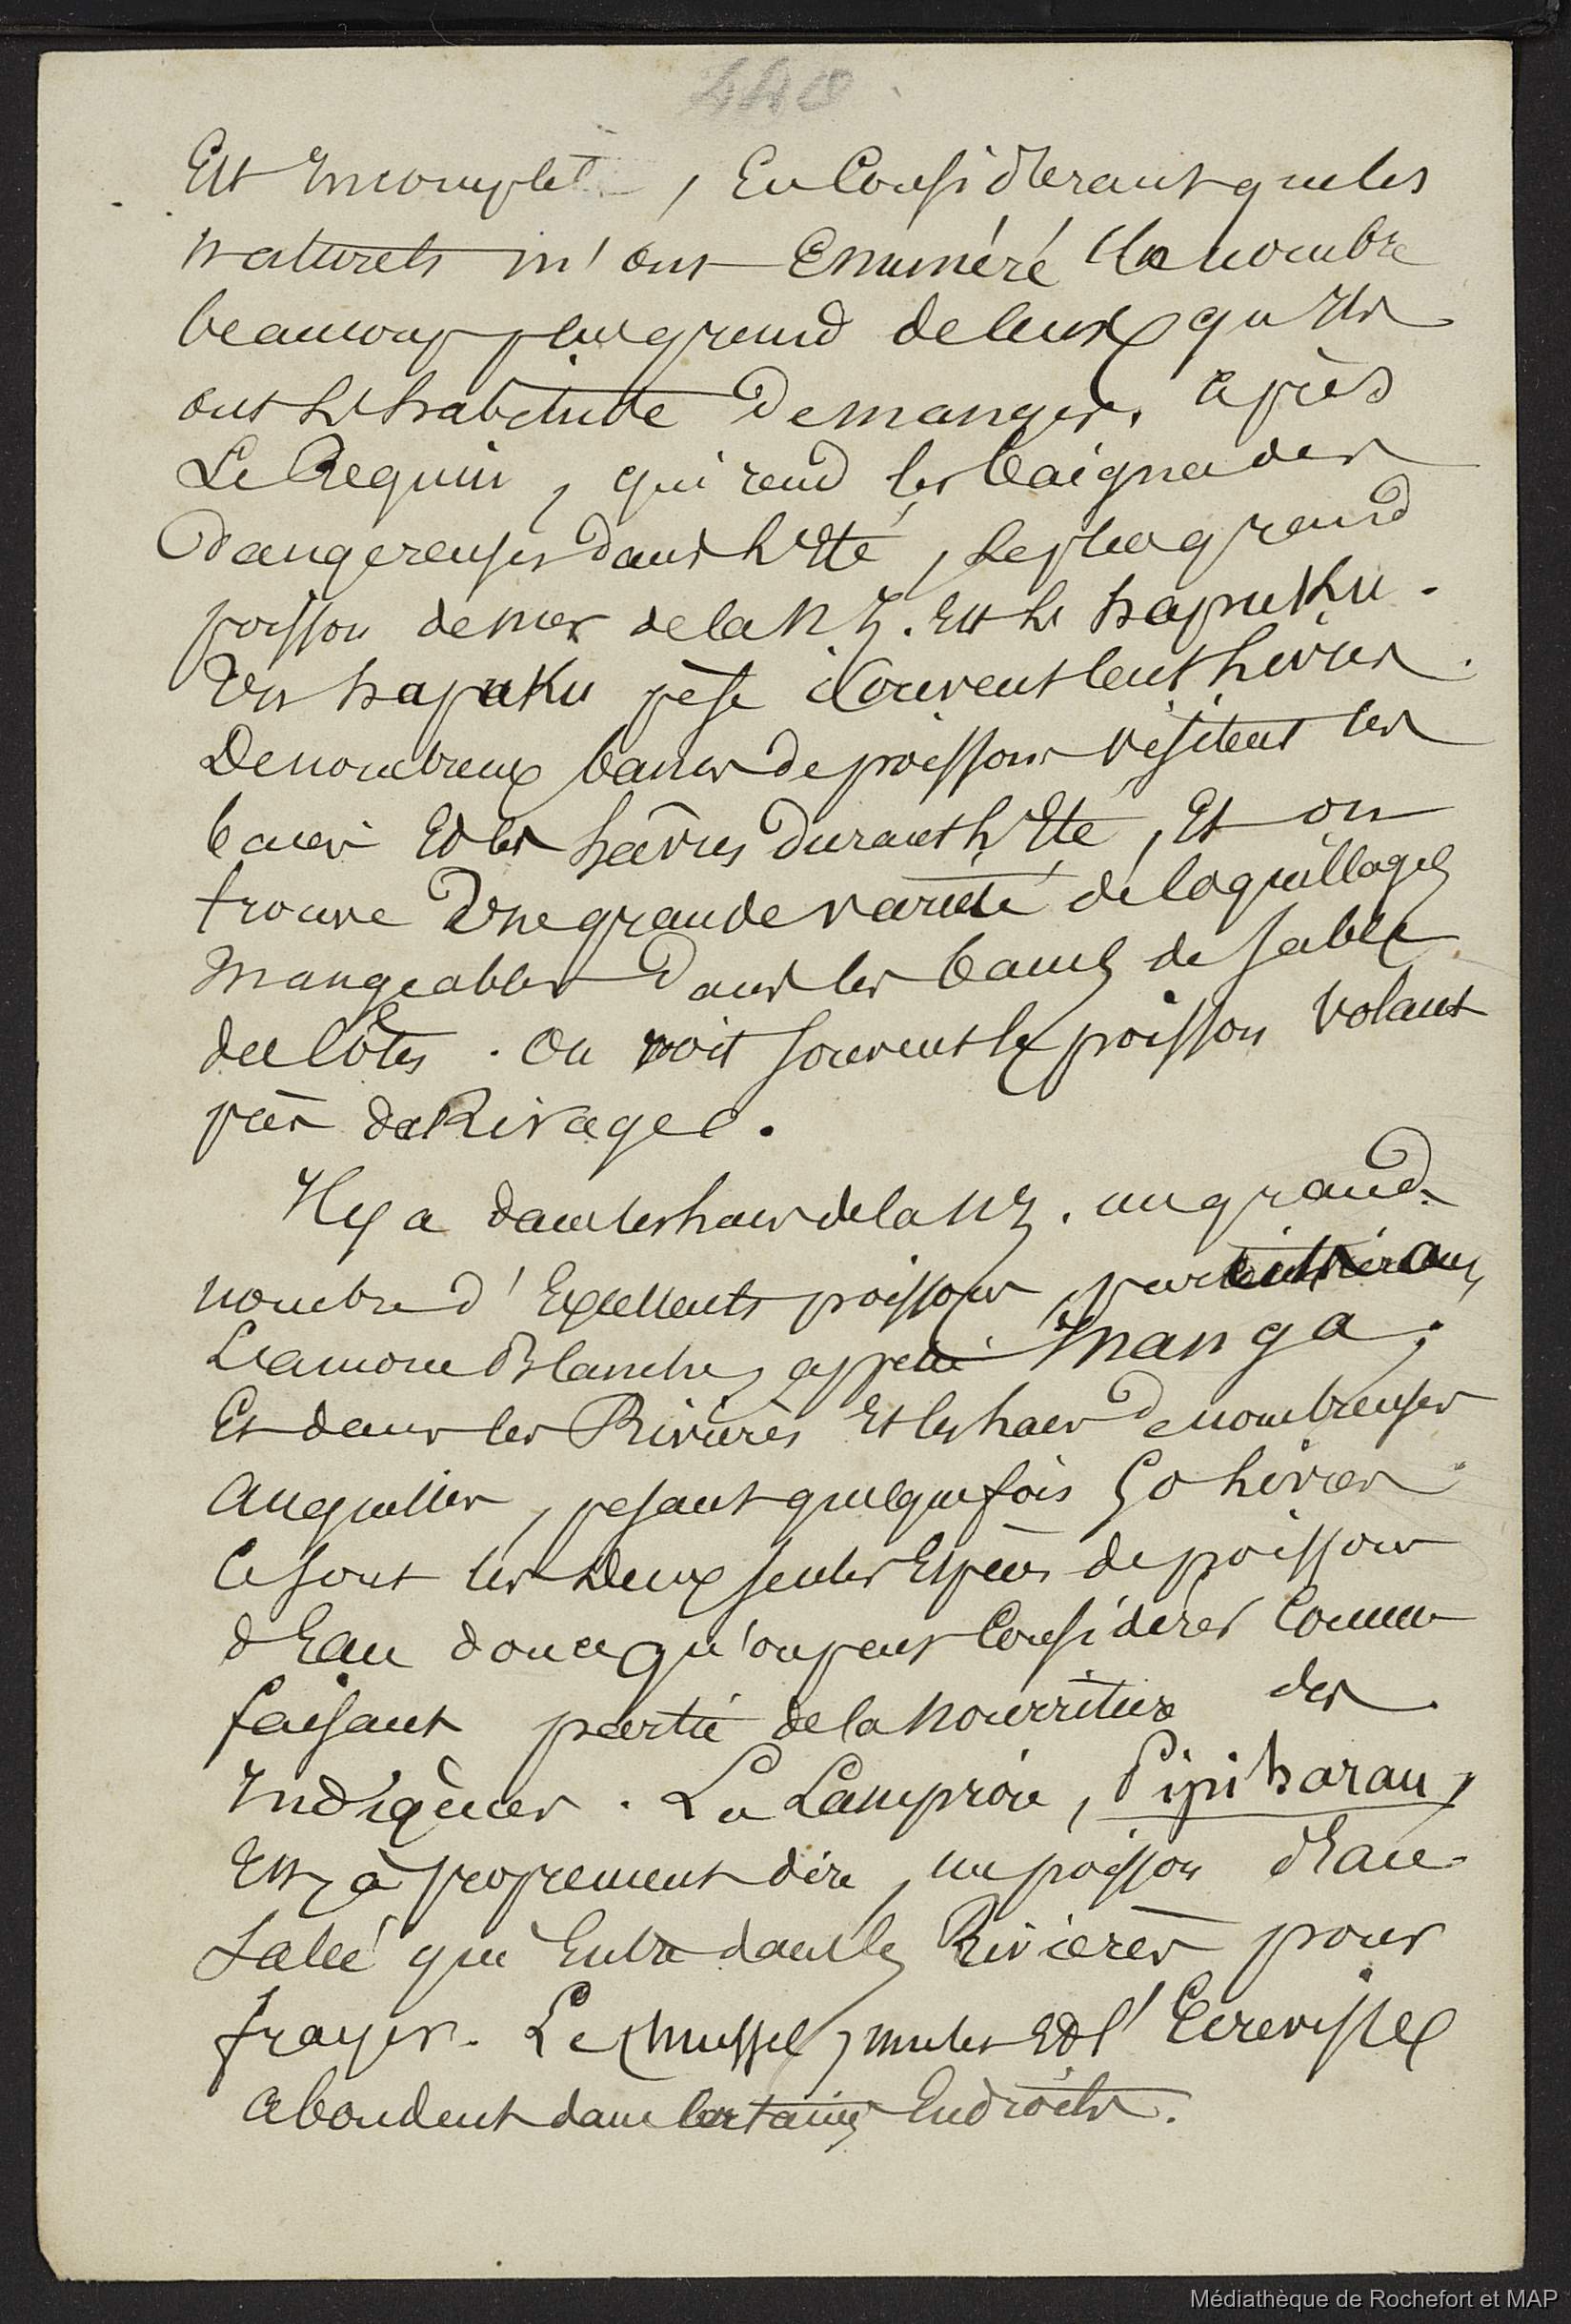 440
Est Incomplet, En Considerant que les
naturels m'ont Enuméré Un nombre
beaucoup plus grand de ceux qu'Ils
ont L'habitude De manger. après
Le Requin, qui rend les baignades
Dangereuses dans L'Eté, Le plus grand
poisson de mer de la N Z. Est Le hapuku.
Un hapuku pèse souvent Cent Livres.
De nombreux bancs de poissons visitent les
baies Et les hâvres Durant L'Eté, Et on
trouve Une grande varieté de Coquillages
Mangeables Dans les bancs de sable
des Côtes. On voit souvent le poisson volant
près de Rivages.
Il y a dans les lacs de la N Z. un grand
nombre d'Excellents poissons,
L'amour Blanche, appelé Inanga;
Et dans les Rivières Et les lacs De nombreuses
Anguilles, pesant quelquefois 50 Livres
Ce sont les Deux seules Espèces de poissons
d'Eau douce qu'on peut Considérer Comme
faisant partie de la nourriture des
Indigènes. La Lamproie, Pipiharau,
Est, à proprement dire, un poisson d'Eau
Salée qui Entre dans les Rivières pour
frayer. Les Mussel, mules Et l'Ecrevisse
abondent dans Certains Endroits.
Médiathèque de Rochefort et MAP